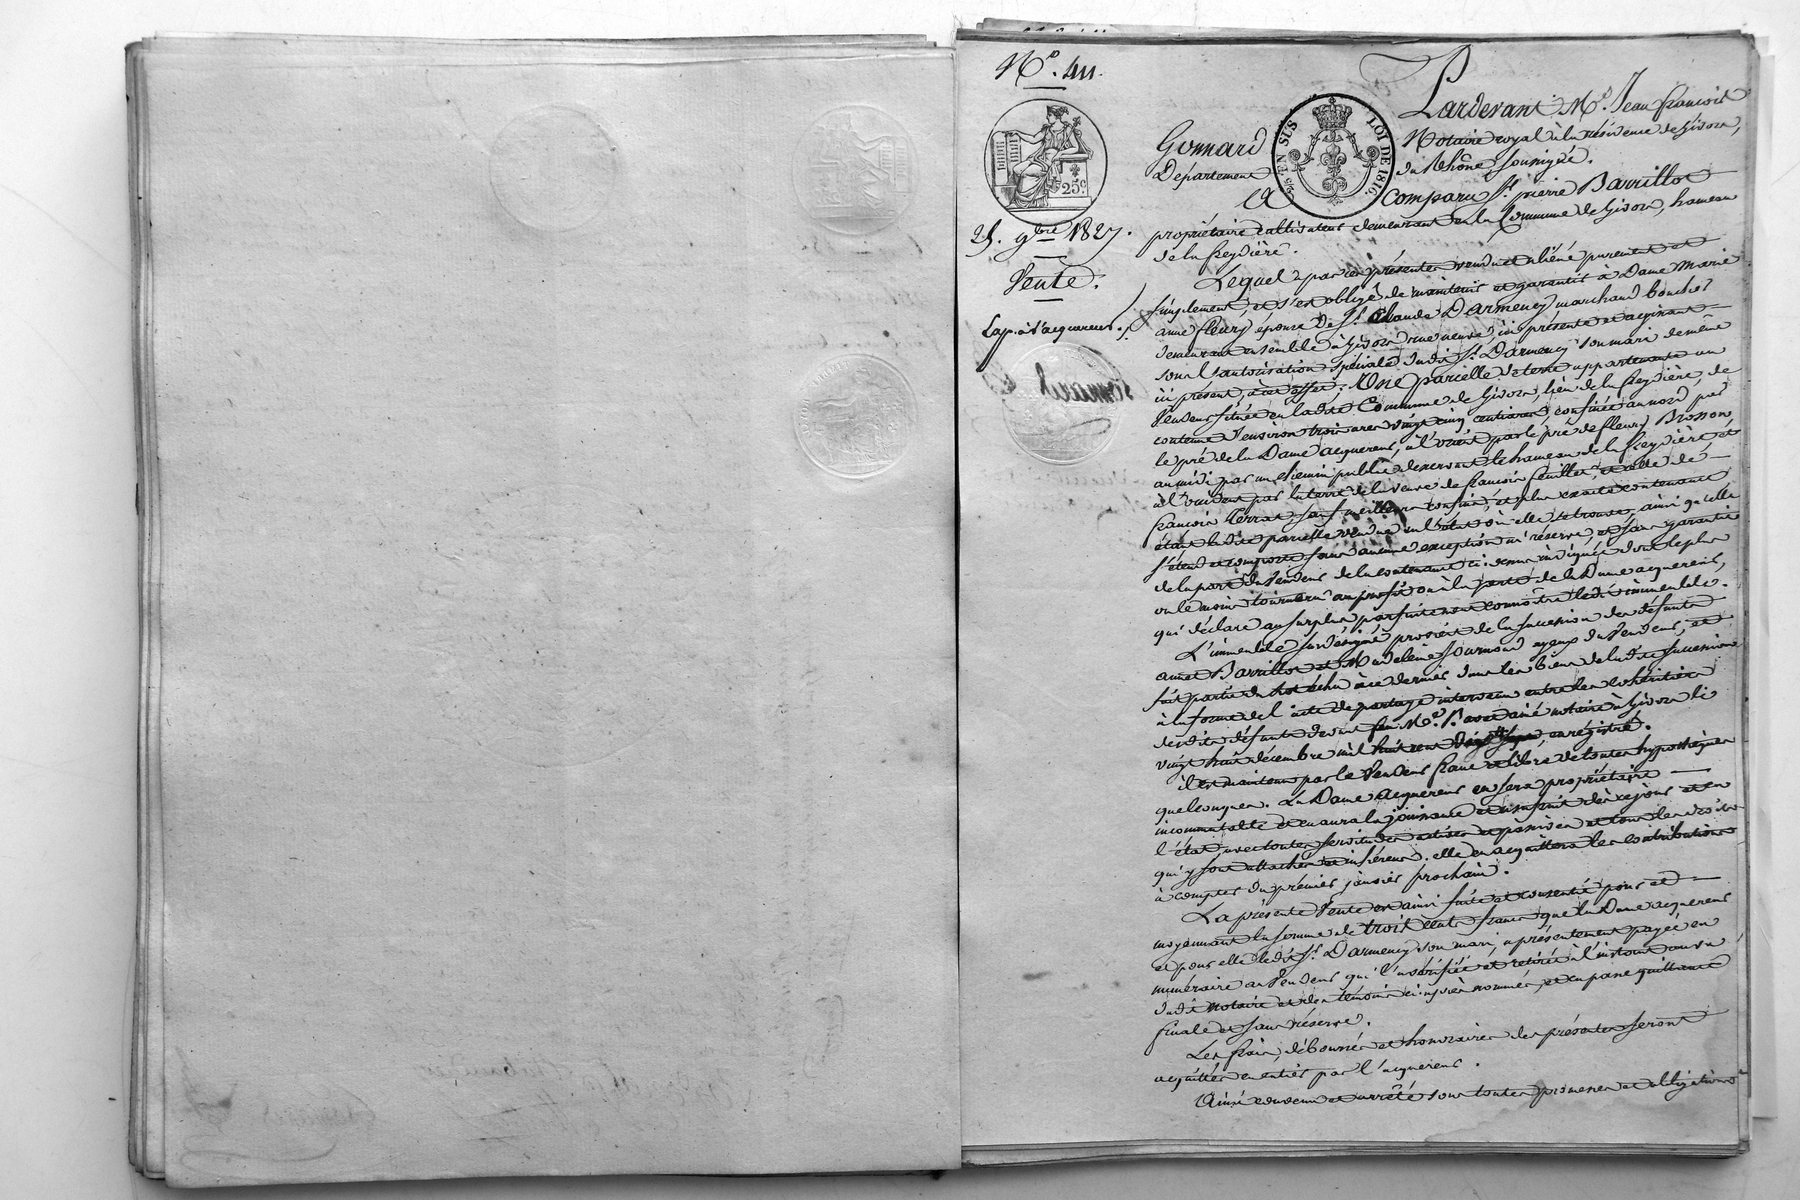 N.º 411.
25. 9bre 1827.
Vente.
Exp. à l'acquereur.
25 c.
EN SUS
LOI DE 1816.
Pardevant Me. Jean françois
Gonnard Notaire royal à la résidence de Givors,
Département du Rhône soussigné.
A Comparu Sr. pierre Barrillot
propriétaire cultivateur demeurant en la Commune de Givors, hameau
de la freydière.
Lequel a par ces présentes vendu et aliéné purement et
simplement, et s'est obligé de maintenir et garantir à Dame Marie
anne fleury épouse de Sr. Claude Darmency marchand boucher
demeurant ensemble à Givors rue neuve, ici présente et acquérant
sous l'autorisation spéciale dudit Sr. Darmency son mari de même
ici présent, à cet effet; Une parcelle de terre appartenante au
Vendeur située en ladite Commune de Givors, lieu de la freydière, de
contenue d'environ trois ares vingt cinq centiares, confinée au nord par
le pré de la Dame acquereur, à l'orient par le pré de fleury Brosson
au midi par un chemin public desservant le hameau de la freydière, et
à l'occident par la terre de la veuve de françois feuillet, et celle de
françois Terrat, sauf meilleurs confins, et plus exacte contenance
étant ladite parcelle vendue en l'état où elle se trouve, ainsi qu'elle
s'étend et comporte sans aucune exception ni réserve, et sans garantie
de la part du Vendeur de la contenance ci-dessus indiquée dont le plus
ou le moins tournera au profit ou à la perte de la Dame acquereur,
qui déclare au surplus parfaitement connoître ledit immeuble.
L'immeuble susdésigné provient de la succession des défunts
amet Barrillot et Madeleine Journoud ayeux du Vendeur, et
fait partie du lot échu à ce dernier dans les biens de ladite succession
à la forme de l'acte de partage intervenu entre les cohéritiers
desdits défunts devant feu Me. Bavet ainé notaire à Givors le
vingt huit décembre mil huit cent enrégistré.
il est maintenu par le Vendeur franc et libre de toutes hypothèques
quelconques. La Dame acquereur en sera propriétaire
incommutable et en aura la jouissance et usufruit dès ce jour et en
l'état, avec toutes servitudes actives et passives et tous les droits
qui y sont attachés et inhérens. elle en acquittera les contributions
à compter du prémier janvier prochain.
La présente Vente est ainsi faite et consentie pour et
moyennant la somme de trois cents francs que la Dame acquereur
et pour elle ledit Sr. Darmency son mari, a présentement payée en
numéraire au Vendeur qui l'a vérifiée et retirée à l'instant au vu
dudit Notaire et des témoins ci-après nommés, et en passe quittance
finale et sans réserve.
Les frais, déboursés et honoraires des présentes seront
acquittés en entier par l'acquereur.
Ainsi convenu et arrêté sous toutes promesses et obligations